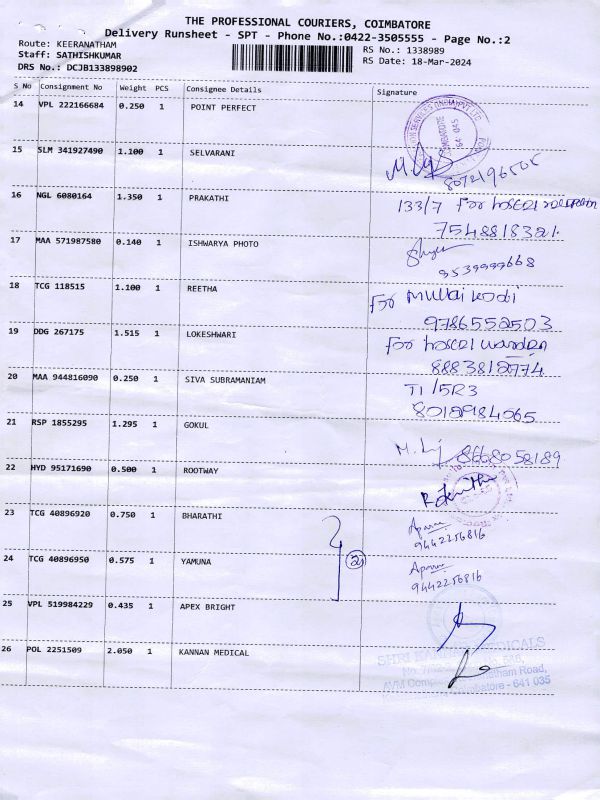 THE PROFESSIONAL COURIERS, COIMBATORE
Delivery Runsheet - SPT - Phone No.:0422-3505555 - Page No.:2
Route: KEERANATHAM
Staff: SATHISHKUMAR
DRS No.: DCJB133898902
RS No.: 1338989
RS Date: 18-Mar-2024
S No Consignment No Weight PCS Consignee Details Signature
14 VPL 222166684 0.250 1 POINT PERFECT
15 SLM 341927490 1.100 1 SELVARANI
8072196505
16 NGL 6080164 1.350 1 PRAKATHI 133/7 for hostel
7548818321
17 MAA 571987580 0.140 1 ISHWARYA PHOTO
9539999668
18 TCG 118515 1.100 1 REETHA for Mullai kodi
9786552503
19 DDG 267175 1.515 1 LOKESHWARI for hostel warden
8883812774
20 MAA 944816090 0.250 1 SIVA SUBRAMANIAM T1/5R3
21 RSP 1855295 1.295 1 GOKUL 8668058189
22 HYD 95171690 0.500 1 ROOTWAY
23 TCG 40896920 0.750 1 BHARATHI
9442256816
2
24 TCG 40896950 0.575 1 YAMUNA
9442256816
25 VPL 519984229 0.435 1 APEX BRIGHT
26 POL 2251509 2.050 1 KANNAN MEDICAL